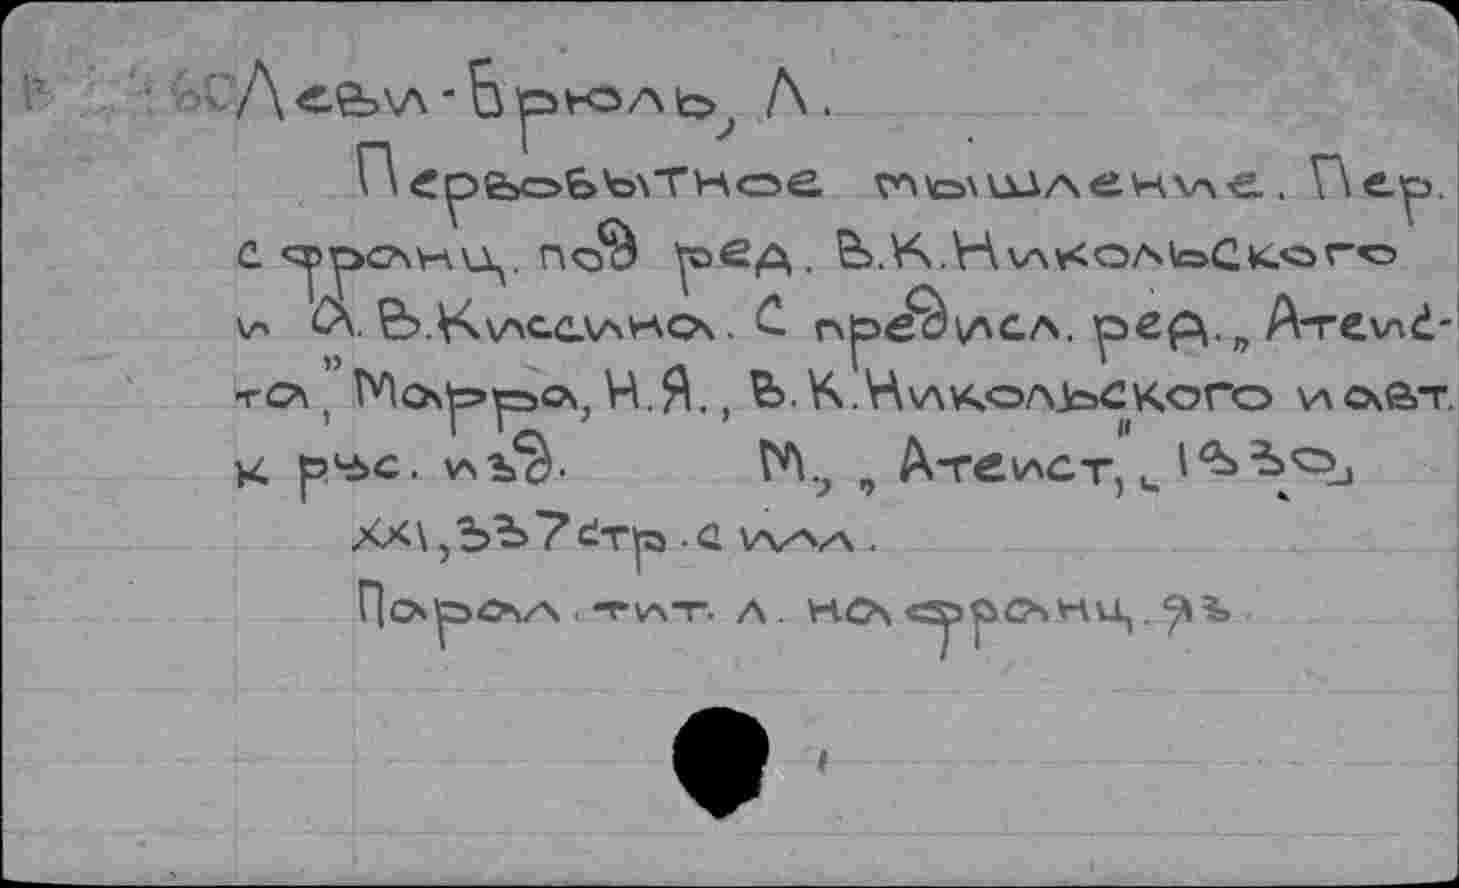 Леви-Брюль, Л.
Первобытное мышление. Пер.
с франц. под ред. В.К.Никольского
и А.В.Киссина. С предисл. ред. „Атеис-
та", Марра, Н.Я., В.К.Никольского и авт.
к рус. изд. М., „Атеист", 1930,
XXI, 337 стр. с илл.
Парал. тит. л. на франц. яз.